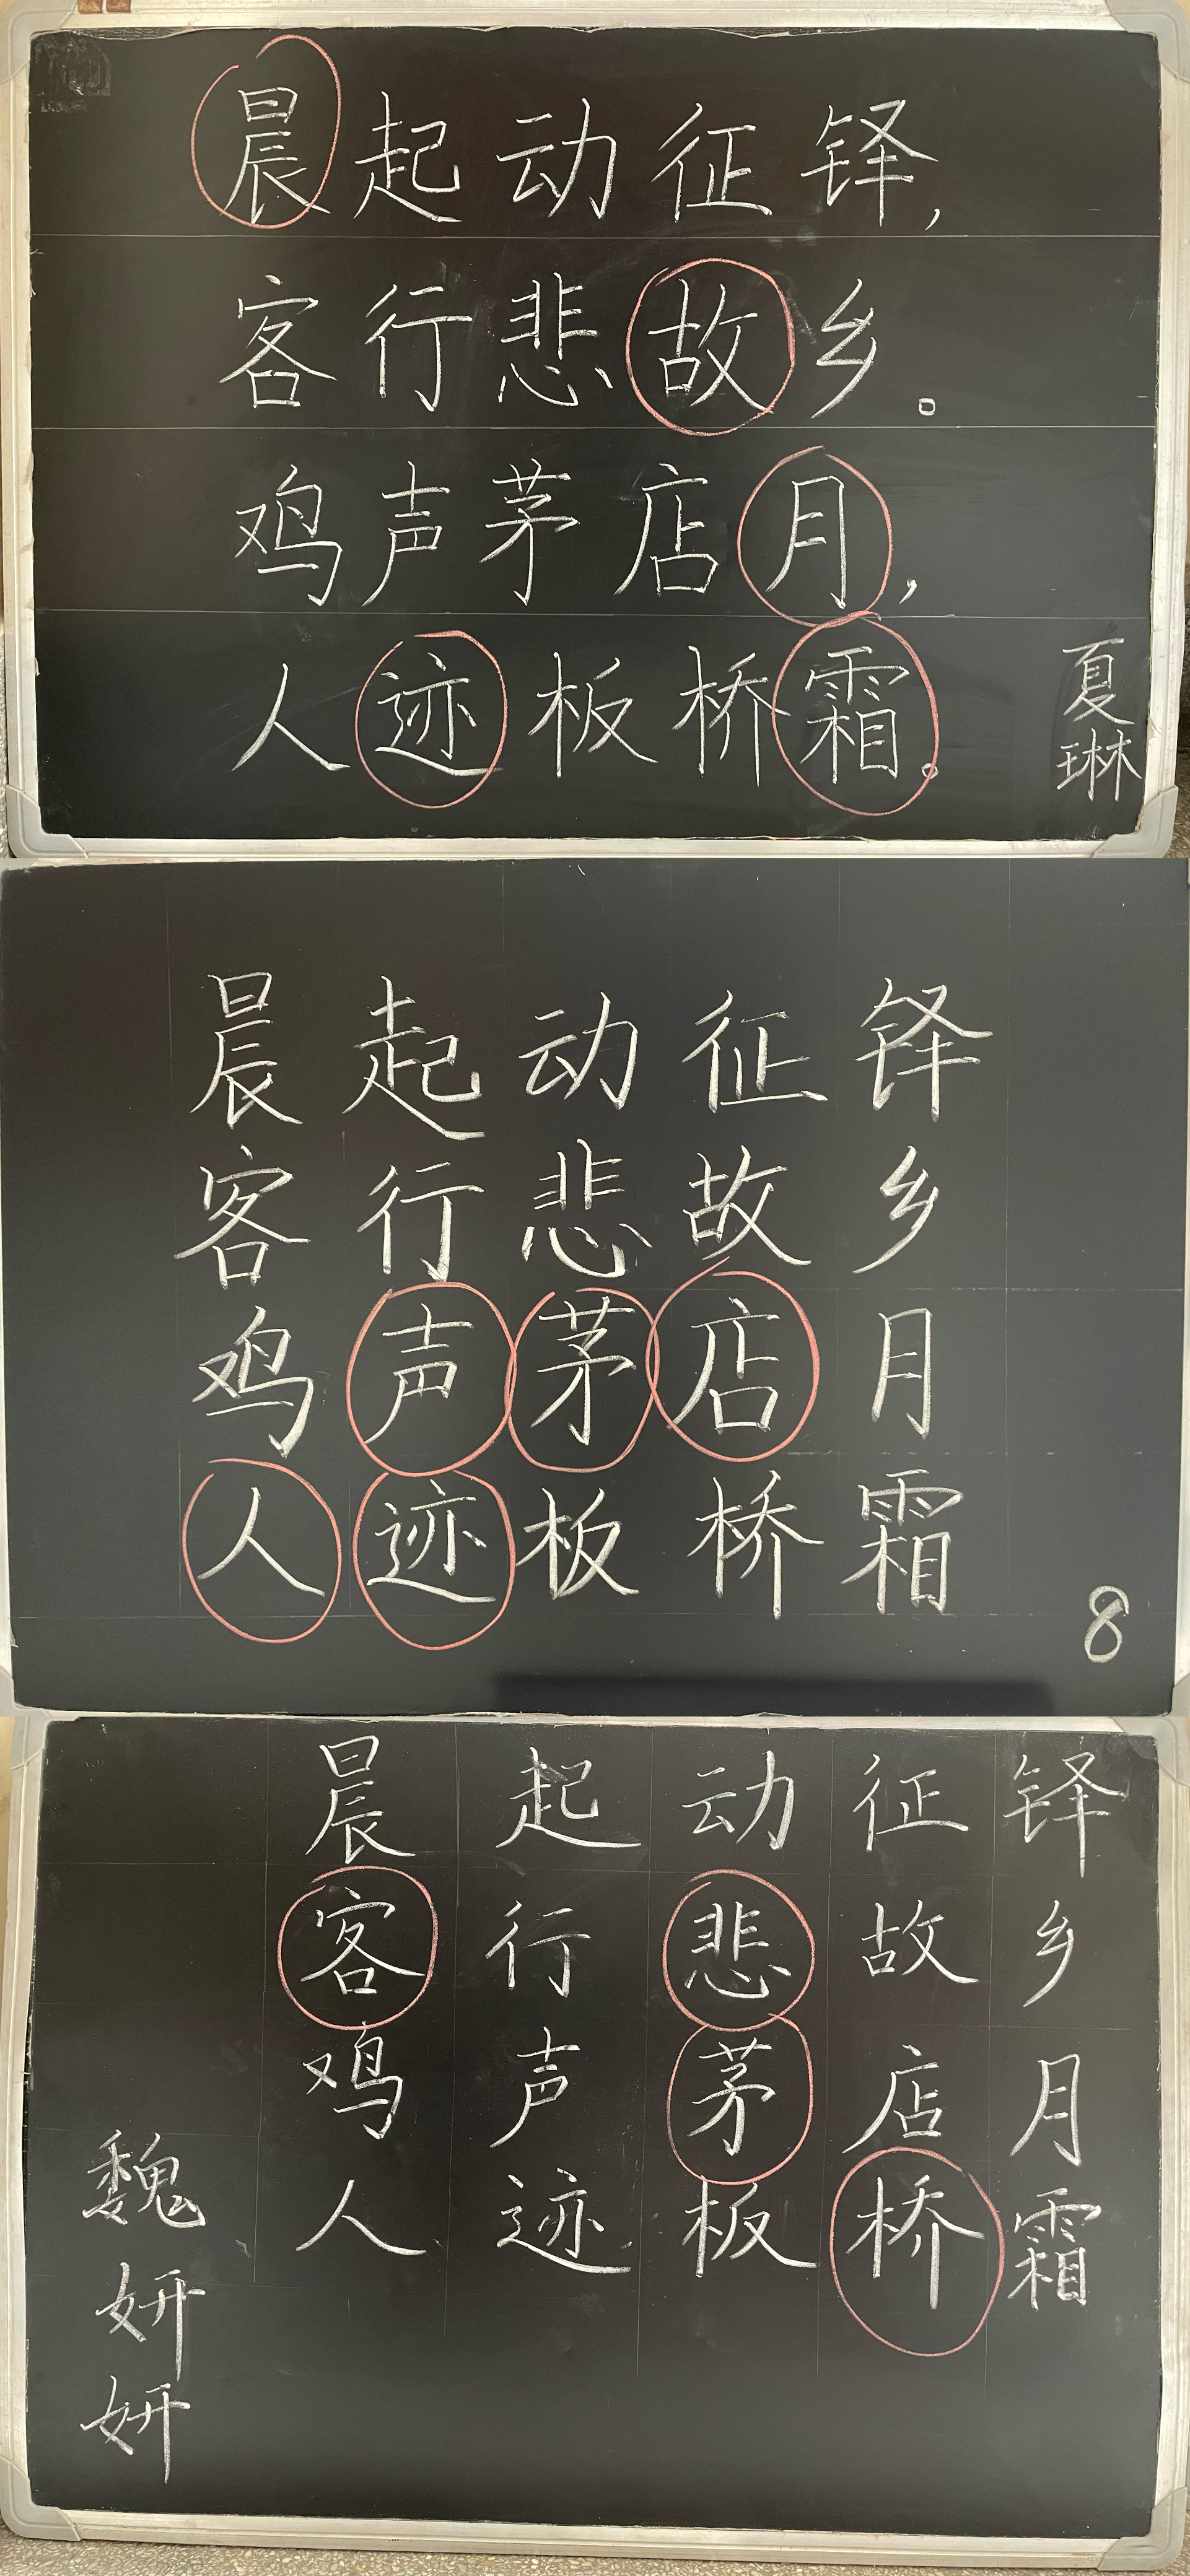 晨起动征铎,
客行悲故乡。
鸡声茅店月,
人迹板桥霜。
夏琳
晨起动征铎
客行悲故乡
鸡声茅店月
人迹板桥霜
8
晨起动征铎
客行悲故乡
鸡声茅店月
人迹板桥霜
魏妍妍